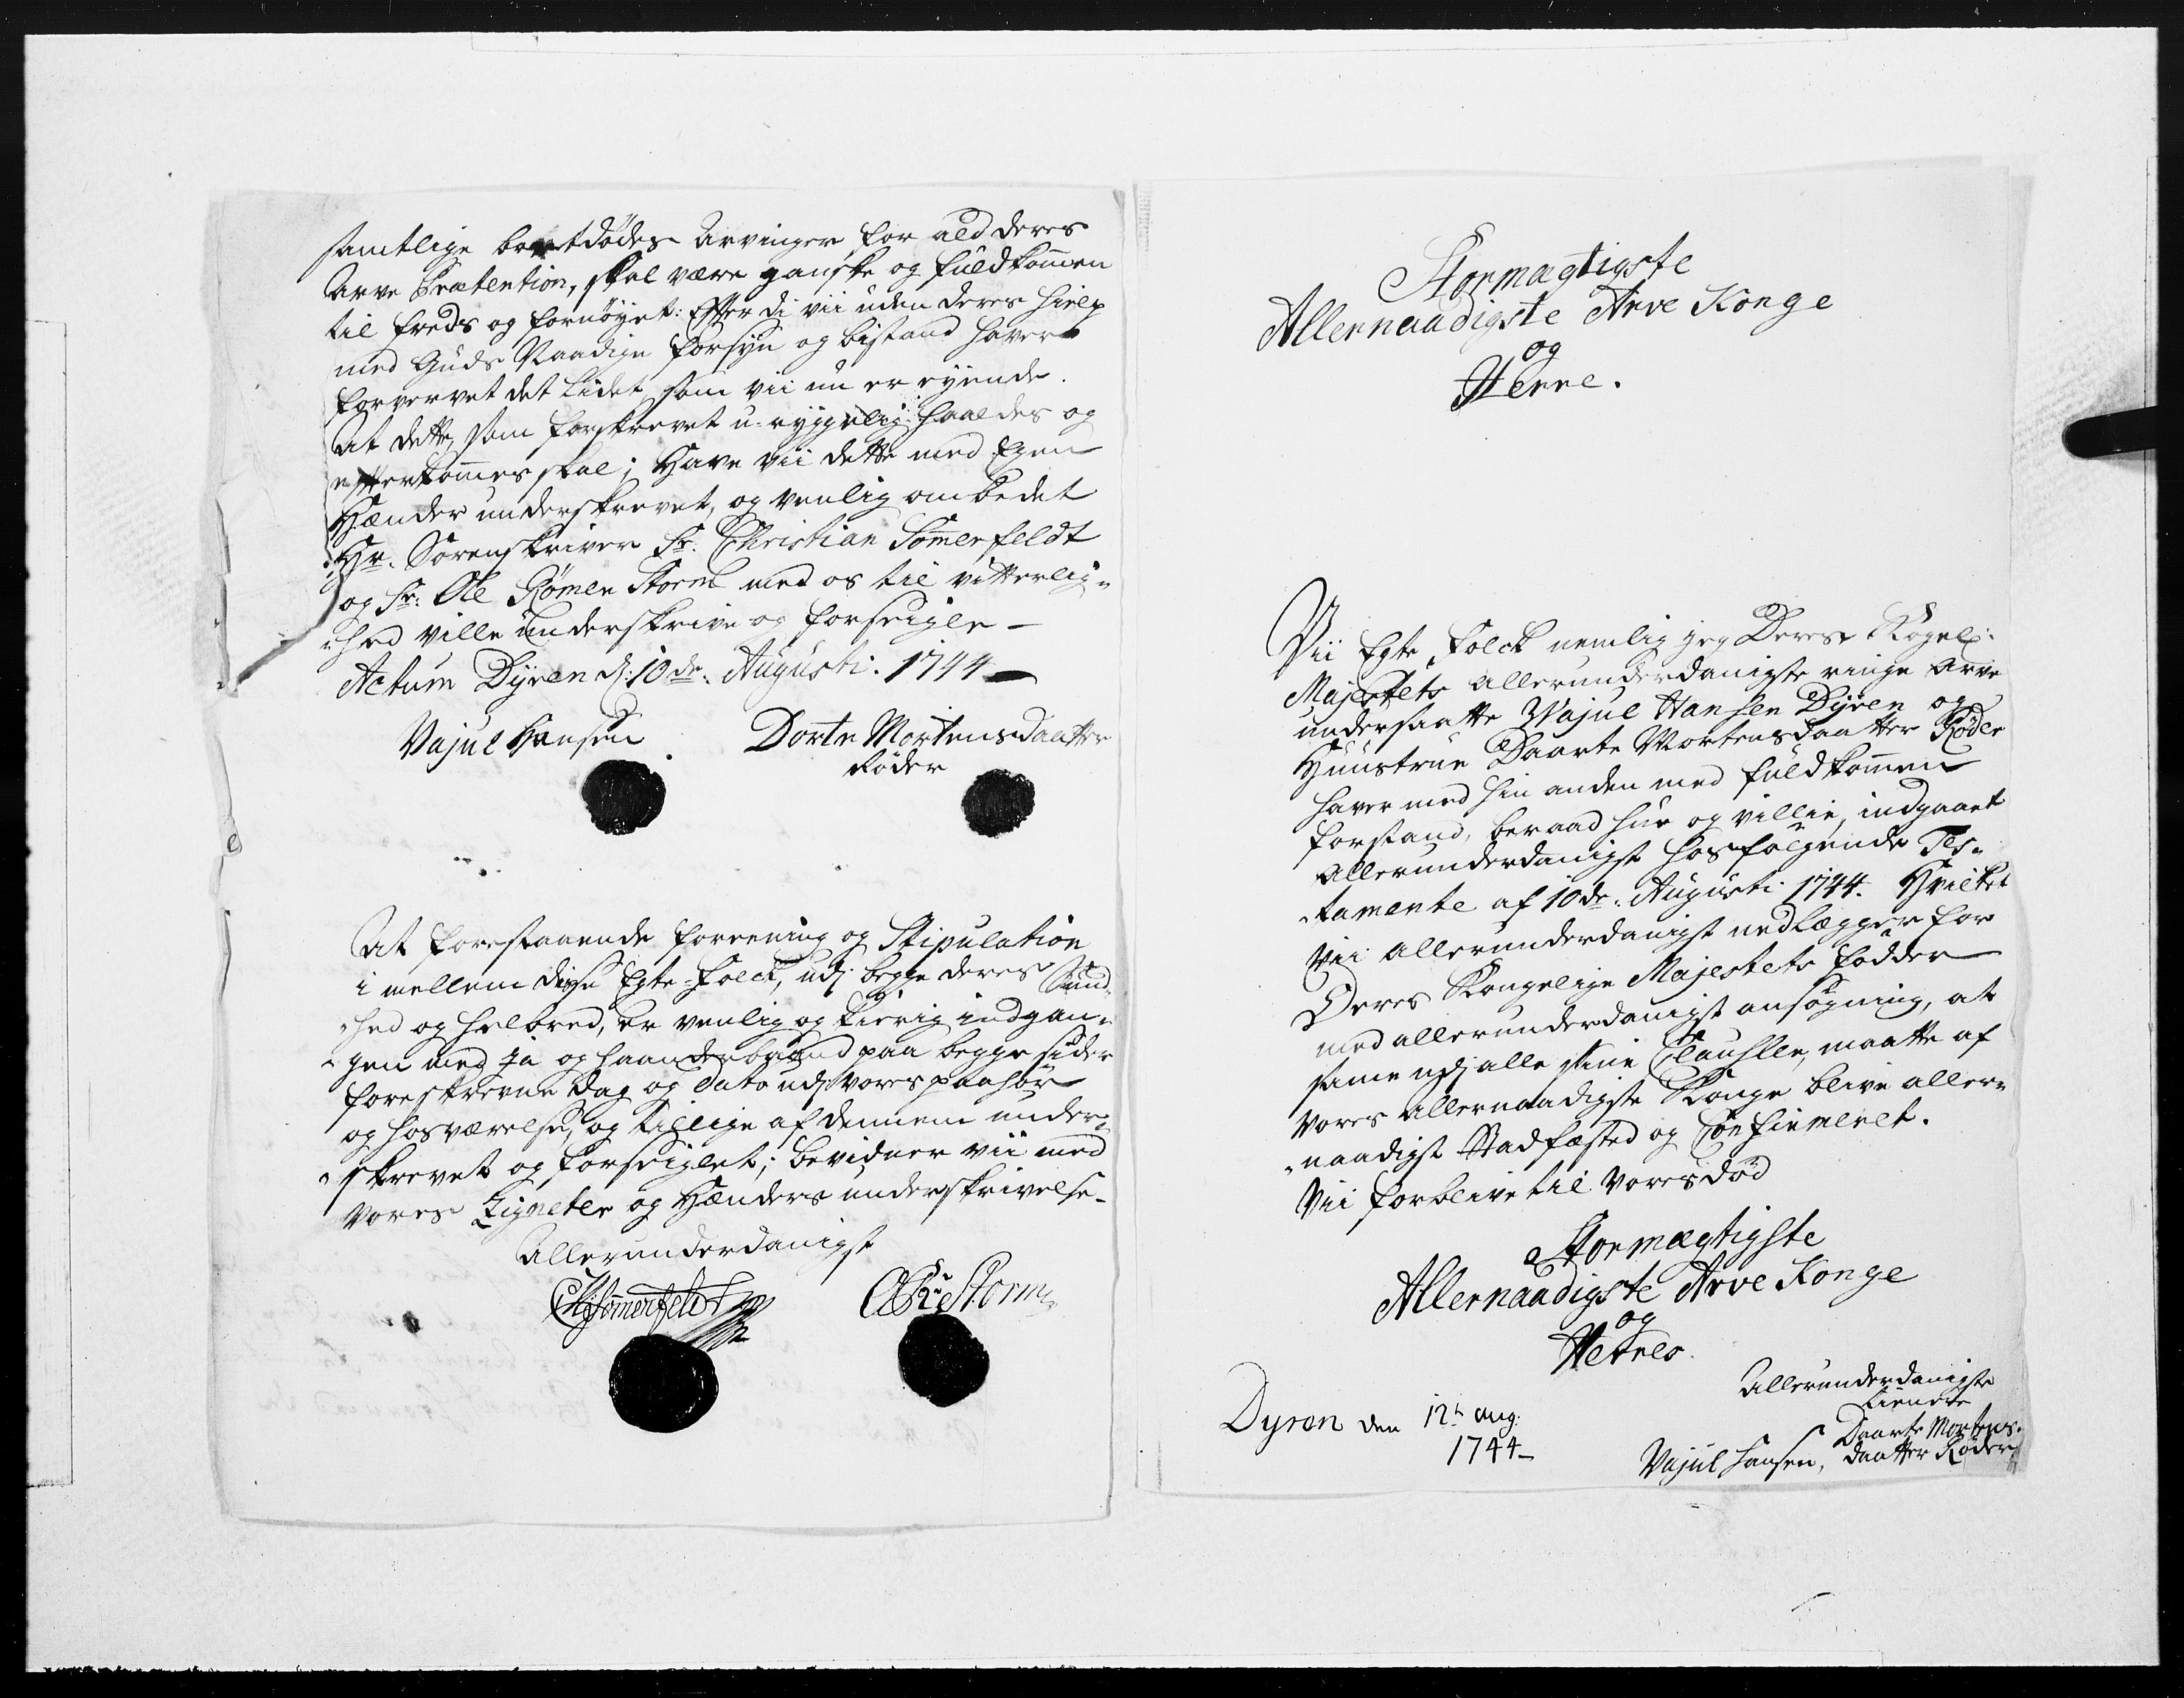 samtlige bortdødes Arvinger, for ald deres
Arve Prætention, skal være ganske og fuldkom̅en
til freds og fornøyet: Efter di vii uden deres hielp
med Guds Naadige forsyn og bistand haver
forvervet det Lidet, som vii nu er eyende.
At dette, som forskrevet u-ryggelig haaldes og
efterkom̅es skal; Have vii dette med Egen
Hænder underskrevet, og venlig ombedet
Hr. Sorenskriver Sr. Christian Som̅erfeldt
og Sr: Ole Rømer Storm med os til vitterlig-
-hed ville underskrive og forseigle —
Actum Dyren d: 10de Augusti. 1744 —
Vajul Hansen
Dorte Mortensdaatter
Røder
At forestaaende forrening og Stipulation
i mellem disse Egte-folck, udj begge deres Sund-
-hed og helbred, er venlig og kierlig indgan-
-gen med ja og haanderbaand paa begge sider
foreskrevne dag og dato udj vores paahør
og hosværelse, og tillige af dennem under-
-skrevet og forseiglet; bevidner vii med
vores Zigneter og Hænders underskrivelse.
Allerunderdanigst
CHSom̅erfeldt
ORStorm
Stormægtigste
Allernaadigste Arve Konge
og
Herre.
Vii Egte folck nemlig jeg Deres Kogel:
Majestets allerunderdanigste ringe Arve
undersaatte Wajul Hansen Dyren og
Huustrue Daarte Mortensdaatter Røder
haver med hin anden med fuldkom̅en
forstand, beraad hue og villie, indgaaet
allerunderdanigst hosfølgende Tes-
-tamente af 10de Augusti 1744. Hvilket
Vii allerunderdanigst nedlægger for
Deres Kongelige Majestets fødder
med allerunderdanigst ansøgning, at
sam̅e udj alle sine Clausller, maatte af
vores allernaadigste Konge blive aller-
-naadigst Stadfæsted og Confirmeret.
Vii forblive til vores død
Stormægtigste
Allernaadigste Arve Konge
og
Herres
Dyren den 12t Aug:
1744 —
Allerunderdanigste
tienere
Daarte Mortens-
Vajul Hansen, daatter Røder